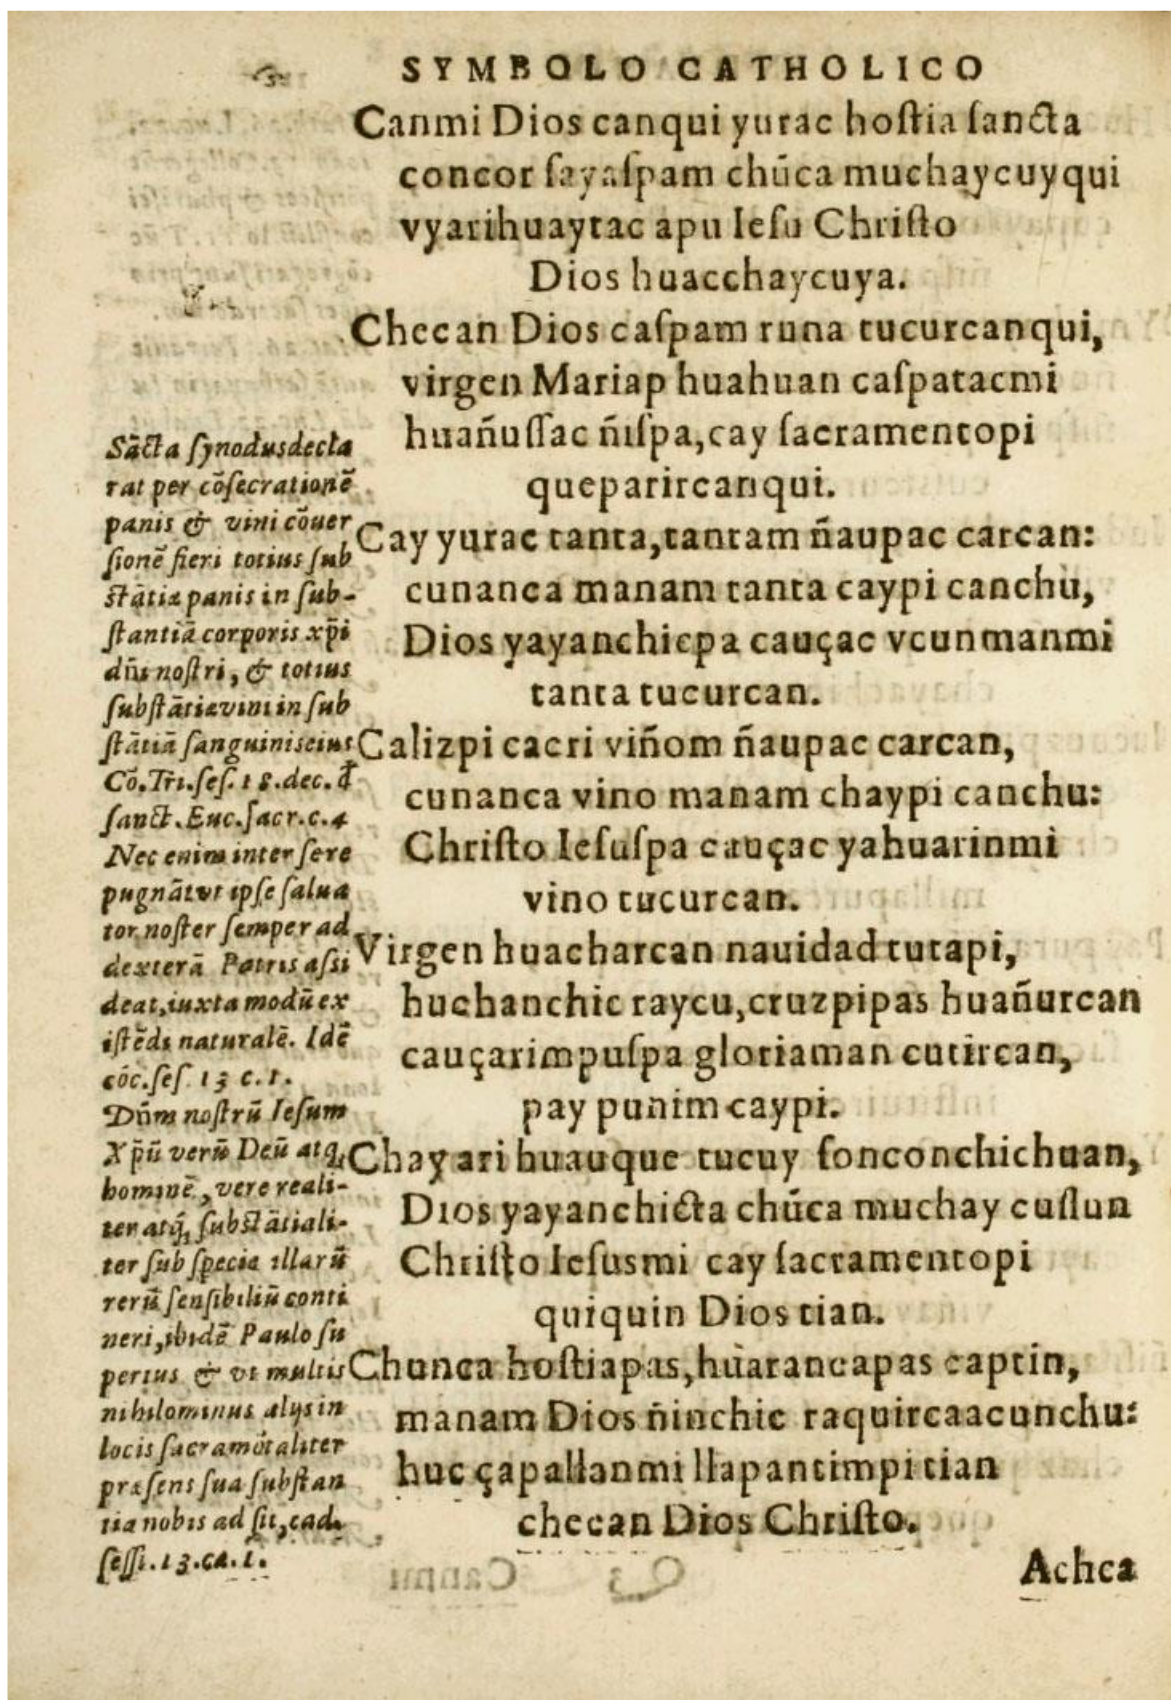 SYMBOLO CATHOLICO
Canmi Dios canqui yurac hoſtia ſancta
concor ſayaſpam chūca muchaycuyqui
vyarihuaytac apu Ieſu Chriſto
Dios huacchaycuya.
Checan Dios caſpam runa tucurcanqui,
virgen Mariap huahuan caſpatacmi
huañuſſac ñiſpa, cay ſacramentopi
queparircanqui.
Cay yurac tanta, tantam ñaupac carcan:
cunanca manam tanta caypi canchu,
Dios yayanchicpa cauçac vcunmanmi
tanta tucurcan.
Calizpi cacri viñom ñaupac carcan,
cunanca vino manam chaypi canchu:
Chriſto Ieſuſpa cauçac yahuarinmi
vino tucurcan.
Virgen huacharcan nauidad tutapi,
huchanchic raycu, cruzpipas huañurcan
cauçarimpuſpa gloriaman cutircan,
pay punim caypi.
Chay ari huauque tucuy ſonconchichuan,
Dios yayanchicta chūca muchay cuſſun
Chriſto Ieſusmi cay ſacramentopi
quiquin Dios tian.
Chunca hoſtiapas, huarancapas captin,
manam Dios ñinchic raquircaacunchu:
huc çapallanmi llapantimpi tian
checan Dios Chriſto.
Achca
Sācta ſynodus decla
rat per cōſecrationē
panis & vini cōuer
ſionē fieri totius ſub
ſtātiæ panis in ſub-
ſtantiā corporis xp̄i
dn̄i noſtri, & totius
ſubſtātiæ vini in ſub
ſtātiā ſanguinis eius
Cō. Tri. ſeſ. 18. dec. đ
ſanct. Euc. ſacr. c. 4
Nec enim inter ſe re
pugnāt vt ipſe ſalua
tor noſter ſemper ad
dexterā Patris aſsi
deat, iuxta modū ex
iſtēdi naturalē. Idē
cōc. ſeſ. 13 c. 1.
Dn̄m noſtrū Ieſum
Xp̄ū verū Deū atq̨
hominē, vere reali-
ter atq̨ ſubſtātiali-
ter ſub ſpecie illarū
rerū ſenſibiliū conti
neri, ibidē Paulo ſu
perius & vt multis
nihilominus alijs in
locis ſacramētaliter
præſens ſua ſubſtan
tia nobis ad ſit, ead.
ſeſſi. 13. ca. 1.